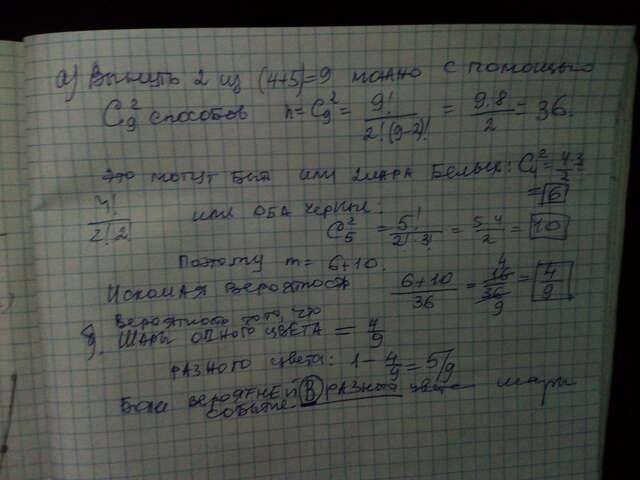 а) Вынуть 2 из (4+5)=9 можно с помощью
C₉² способов n=C₉² = 9!/2!(9-2)! = 9·8/2 = 36.
это могут быть или 2 шара белых: C₄² = 4·3/2 =
4!/2!2! = 6
или оба черных:
C₅² = 5!/2!·3! = 5·4/2 = 10
Поэтому m = 6+10.
Искомая вероятность 6+10/36 = 16/36 4/9 = 4/9
б) Вероятность того, что
шары одного цвета = 4/9
разного цвета: 1 - 4/9 = 5/9
Более вероятней В разного цвета шары
событие